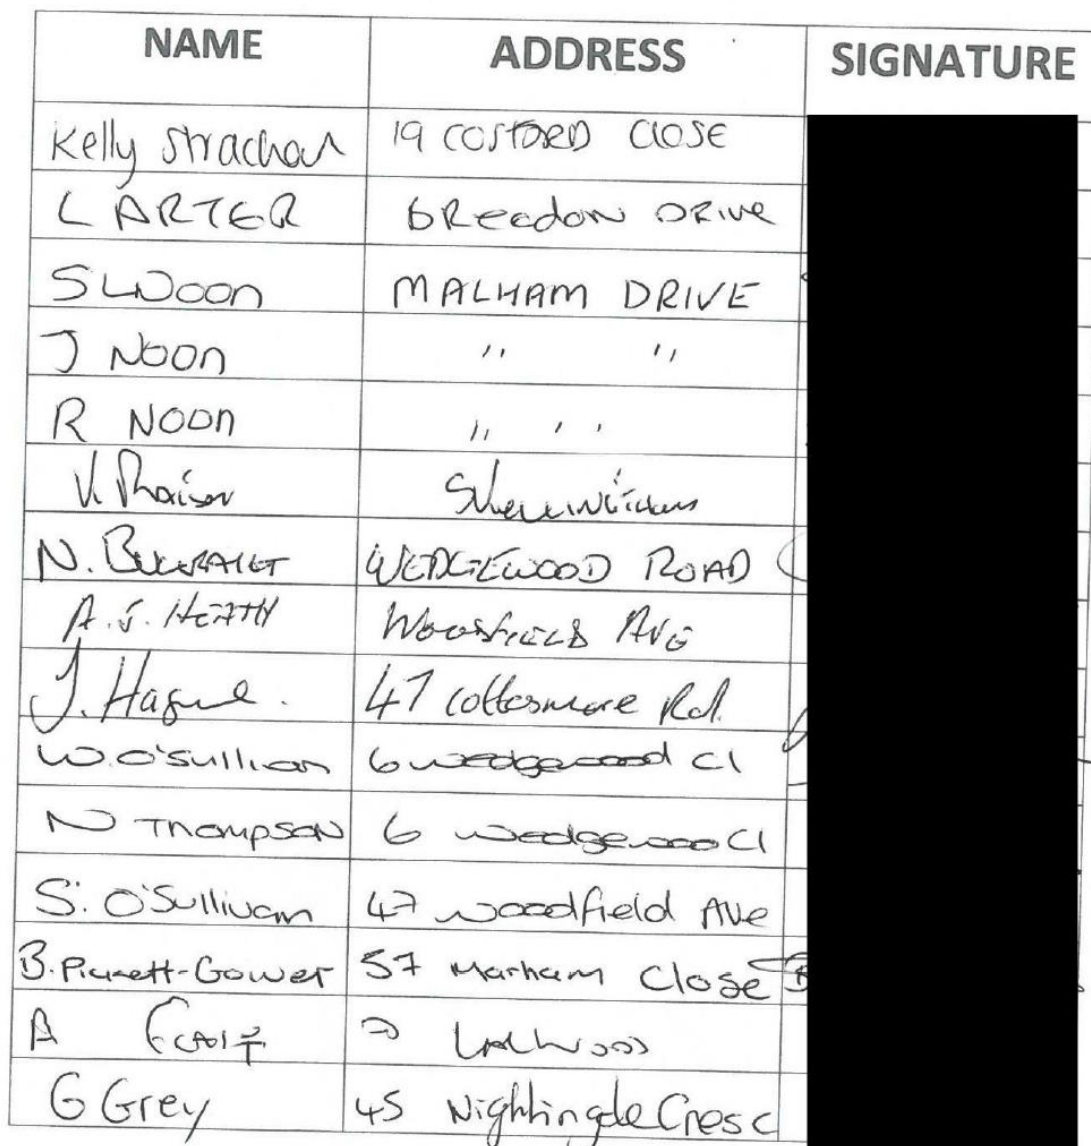 NAME ADDRESS SIGNATURE
Kelly Strachan 19 COSFORD CLOSE
L ARTER BREEDON DRIVE
S L NOON MALHAM DRIVE
J NOON " "
R NOON " "
V.
N. WEDGEWOOD ROAD
A.J. HEATH WOODFIELD AVE
J. Hague. 47 Cottesmore Rd.
W.O'Sullivan 6 wedgewood Cl
N Thompson 6 wedgewood Cl
S. O'Sullivan 47 woodfield Ave
B. Pickett-Gower 57 Marham Close
A 7
G Grey 45 Nightingale Cresc